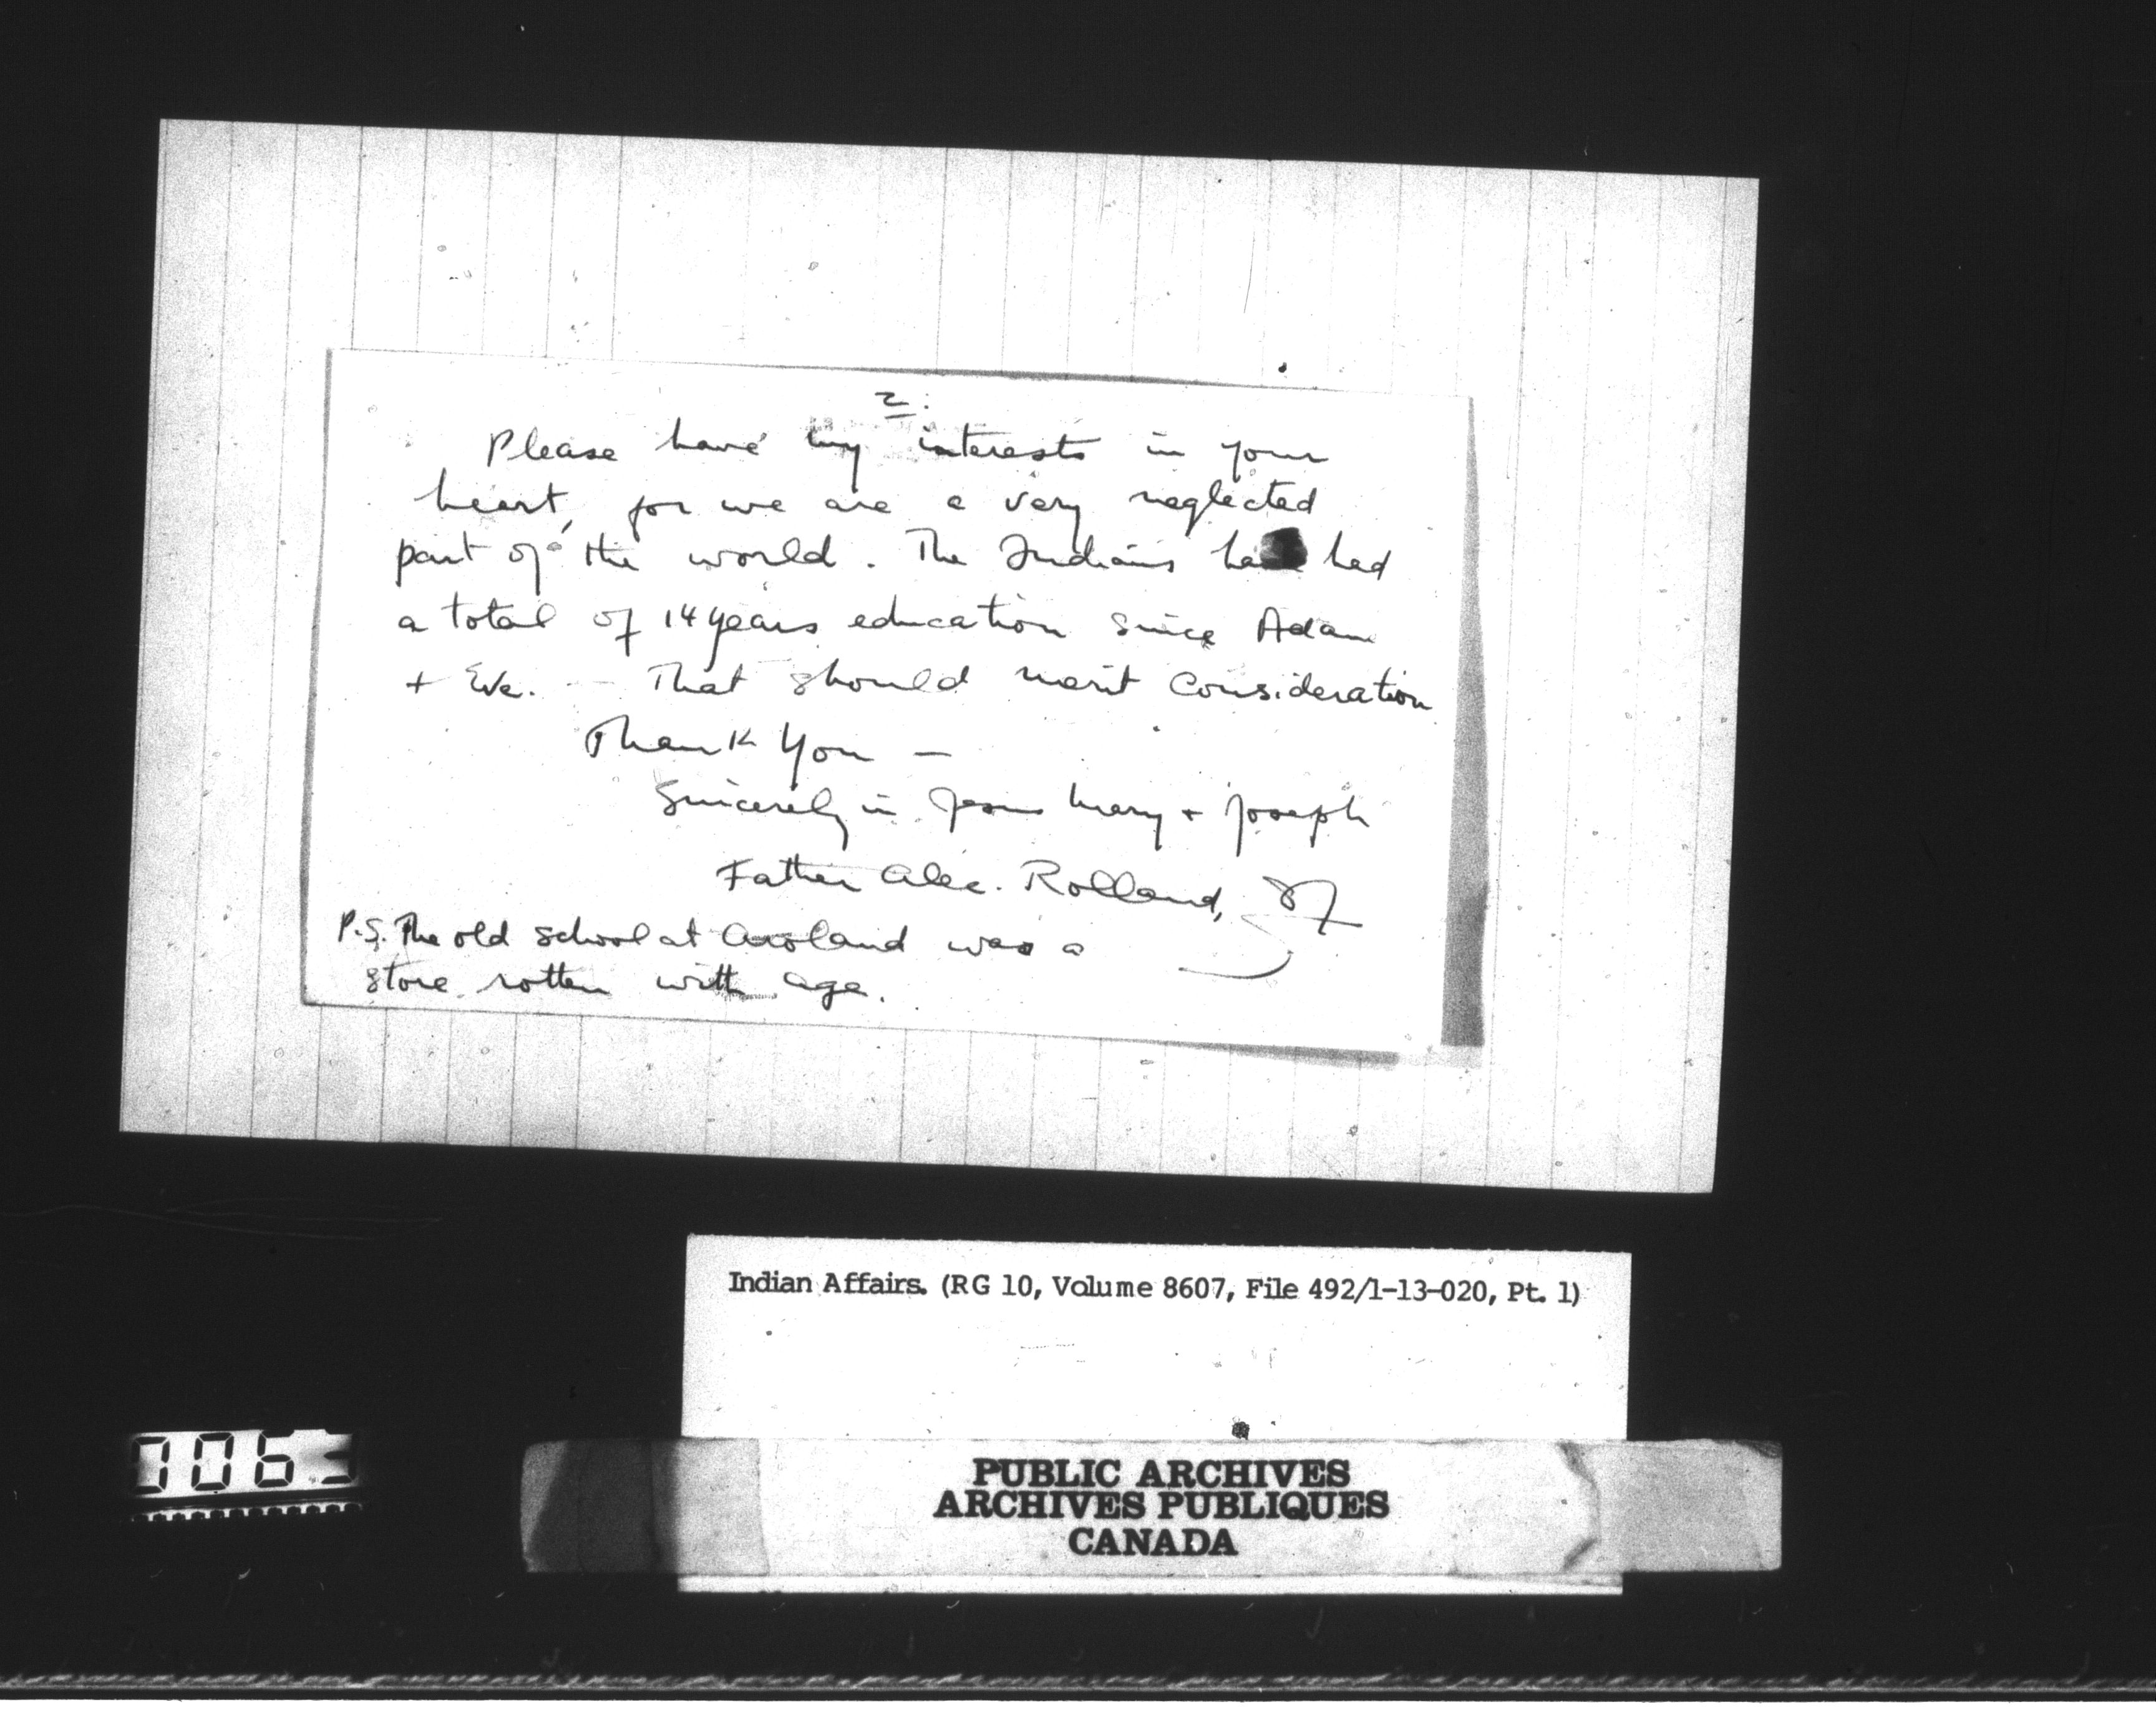 2:
Please have my interests in your
heart, for we are a very neglected
part of the world. The Indians have had
a total of 14 years education since Adam
+ Eve. - That should merit Consideration
Thank You -
Sincerely in Jesus Mary + Joseph
Father Alec. Rolland, SJ
P.S. The old school at Aroland was a
store rotten with age.
Indian Affairs. (RG 10, Volume 8607, File 492/1-13-020, Pt. 1)
PUBLIC ARCHIVES
ARCHIVES PUBLIQUES
CANADA